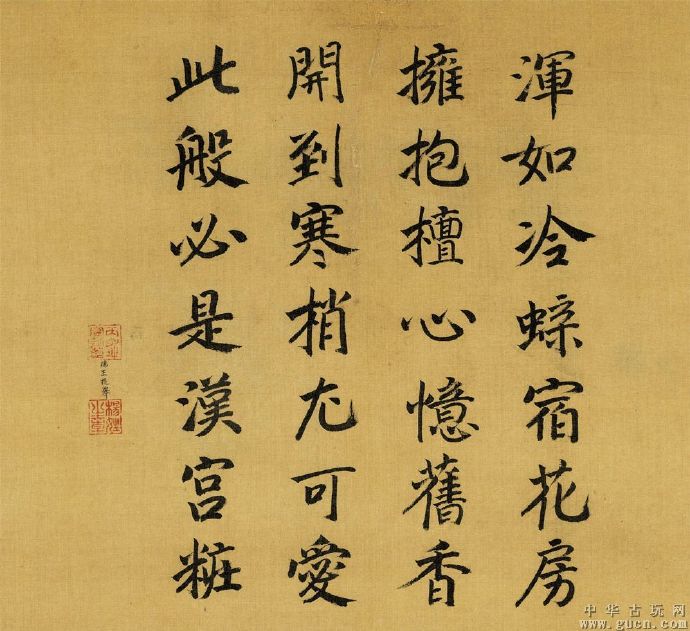 渾如冷蜨宿花房
擁抱檀心憶舊香
開到寒梢尤可愛
此般必是漢宮粧
中华古玩网
www.gucn.com